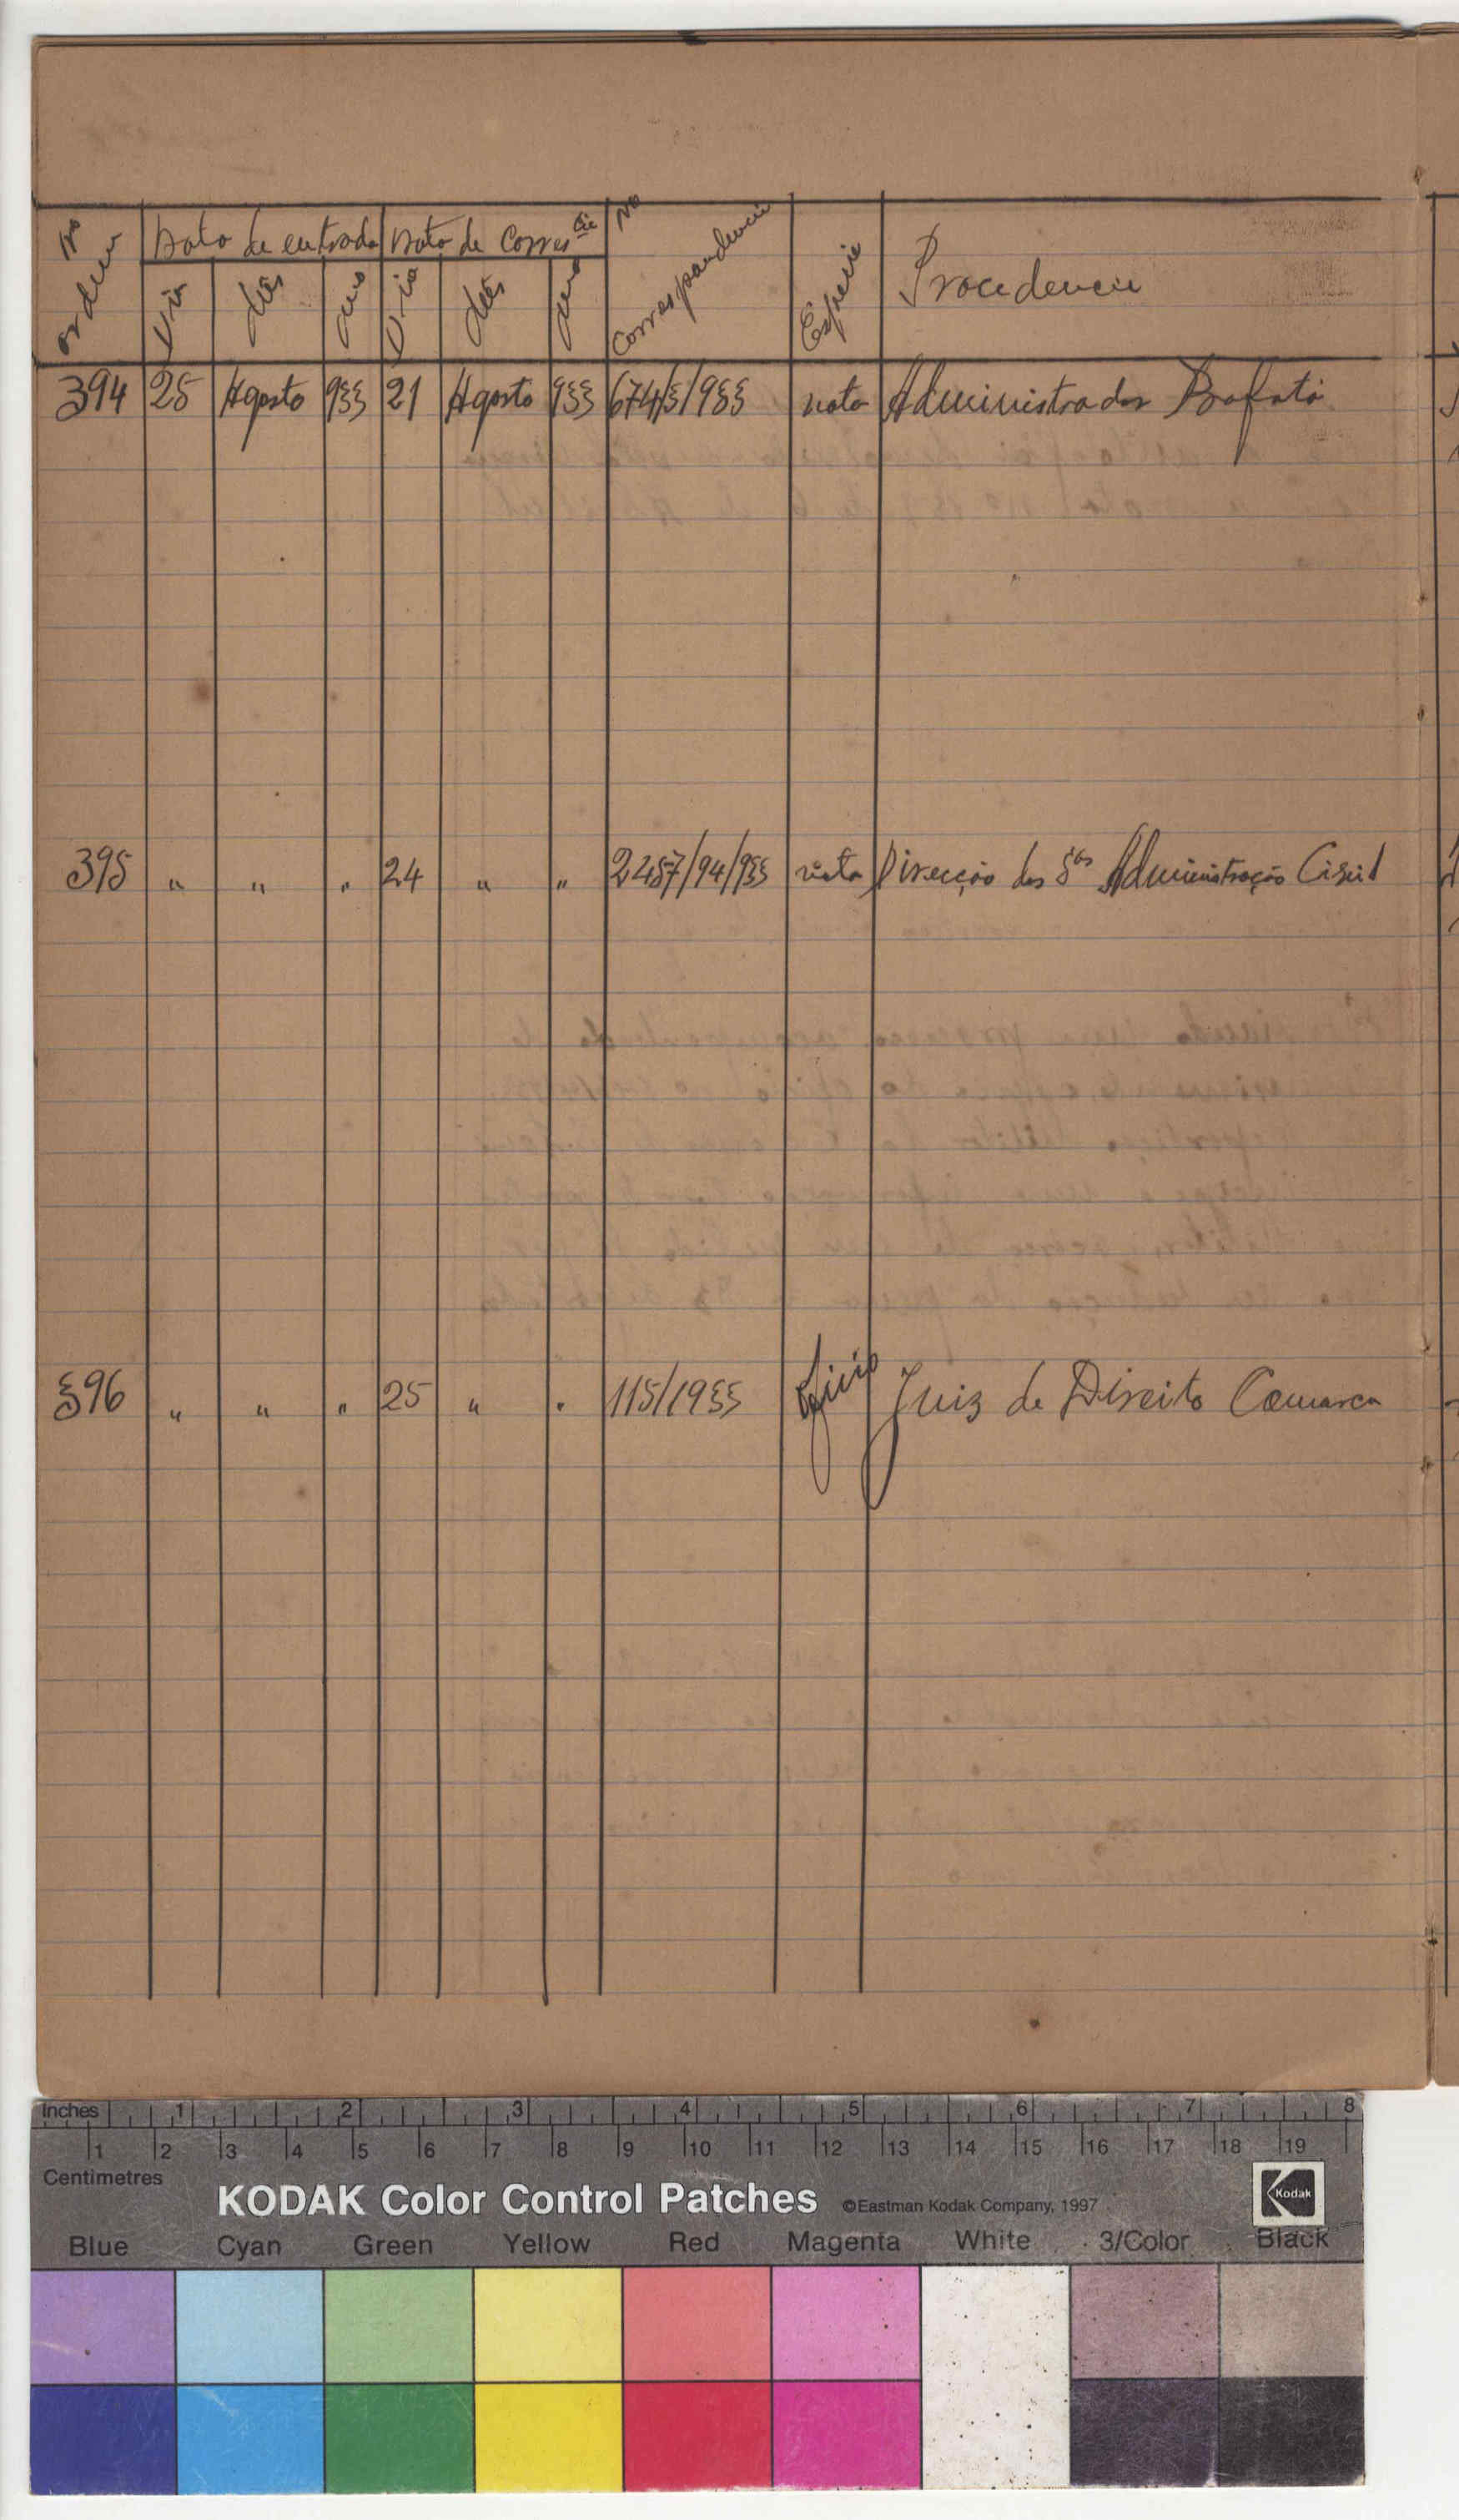 Nº ordem Data de entrada Data de Corres cia Nº Correspondencia Especie Procedencia
Dia Mês ano Dia Mês ano
394 25 Agosto 933 21 Agosto 933 674/5/933 nota Administrador Bafatá
395 " " " 24 " " 2457/94/933 nota Direcção dos Sos Administração Civil
396 " " " 25 " " 115/1933 Oficio Juiz de Direito Comarca
Inches 1 2 3 4 5 6 7 8
1 2 3 4 5 6 7 8 9 10 11 12 13 14 15 16 17 18 19
Centimetres
KODAK Color Control Patches ©Eastman Kodak Company, 1997 Kodak
Blue Cyan Green Yellow Red Magenta White 3/Color Black